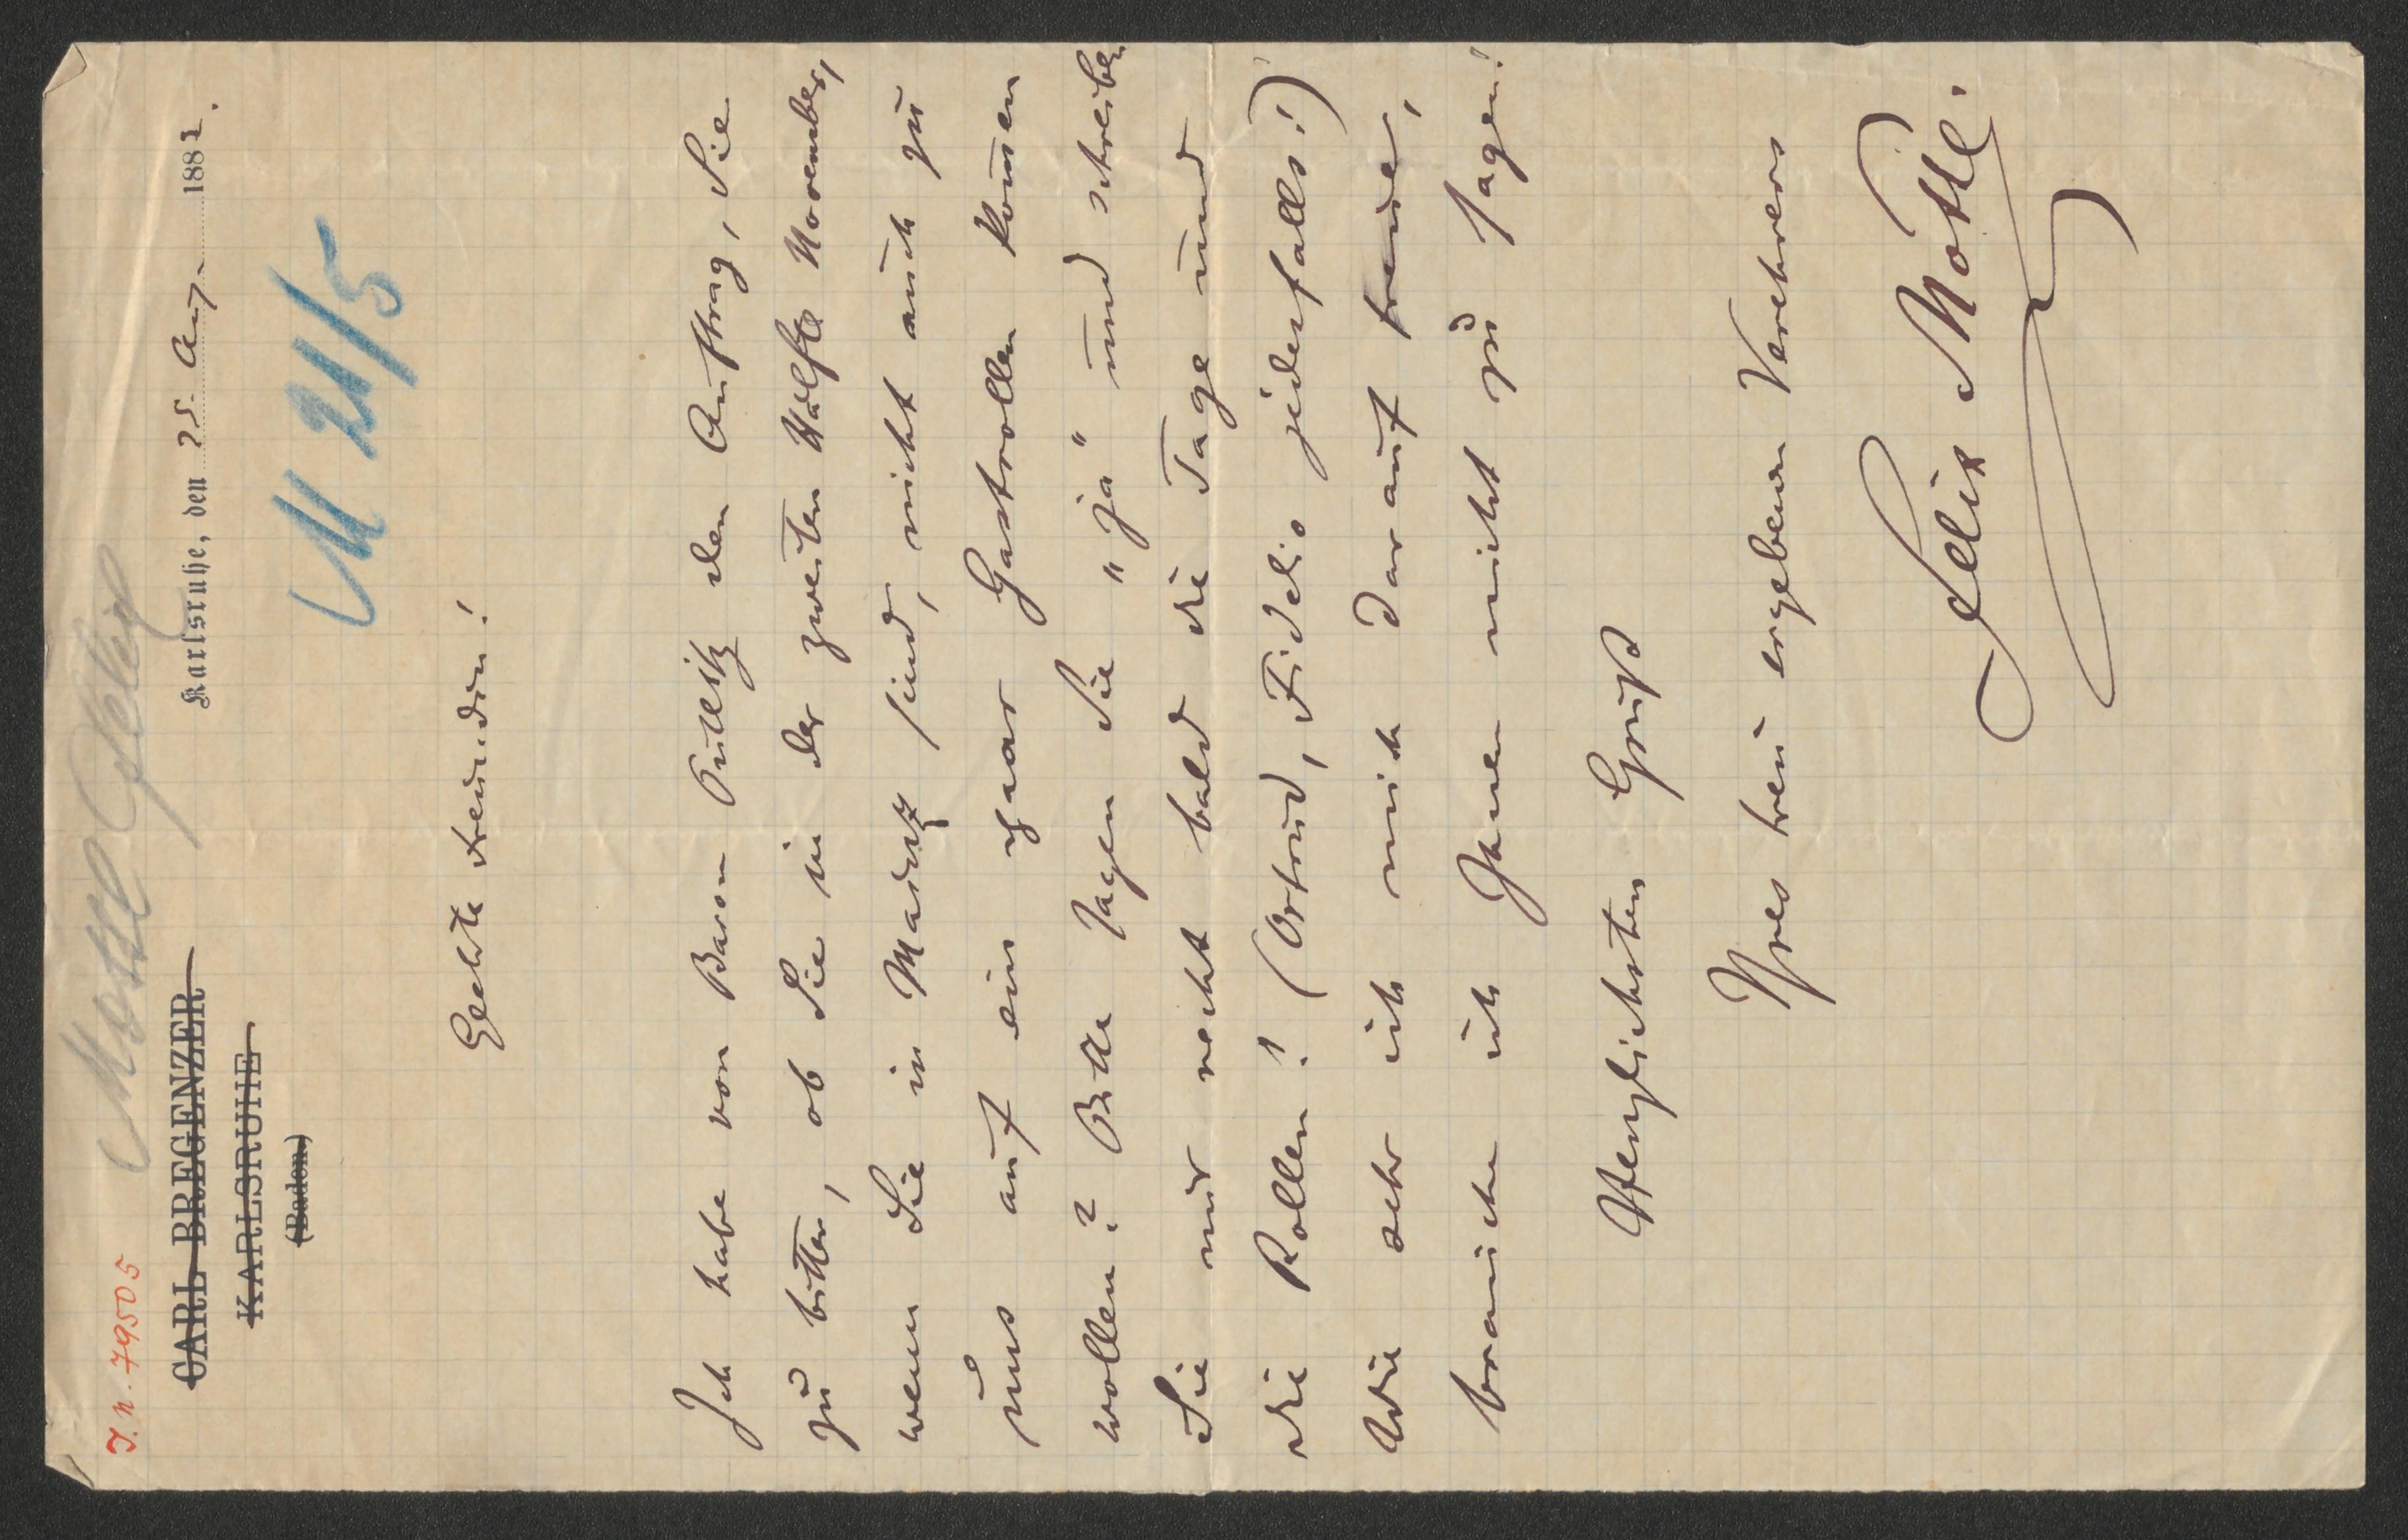 J.N. 79505 Mottl Felix
CARL BREGENZER
KARLSRUHE
(Baden)
Karlsruhe, den 25. Aug. 1882.
M 21/5
Geehrte Freundin!
Ich habe von Baron Putlitz den Auftrag, Sie
zu bitten, ob Sie in der zweiten Hälfte November,
wenn Sie in sind, nicht auch zu
uns auf ein paar Gastrollen kom̅en
wollen? Bitte sagen Sie „ja" und schreiben
Sie mir recht bald die Tage und
die Rollen! (Ortrud, Fidelio jedenfalls!)
Wie sehr ich mich darauf freue,
brauche ich Ihnen nicht zu sagen!
Herzlichsten Gruß
Ihres treu ergebenen Verehrers
Felix Mottl.